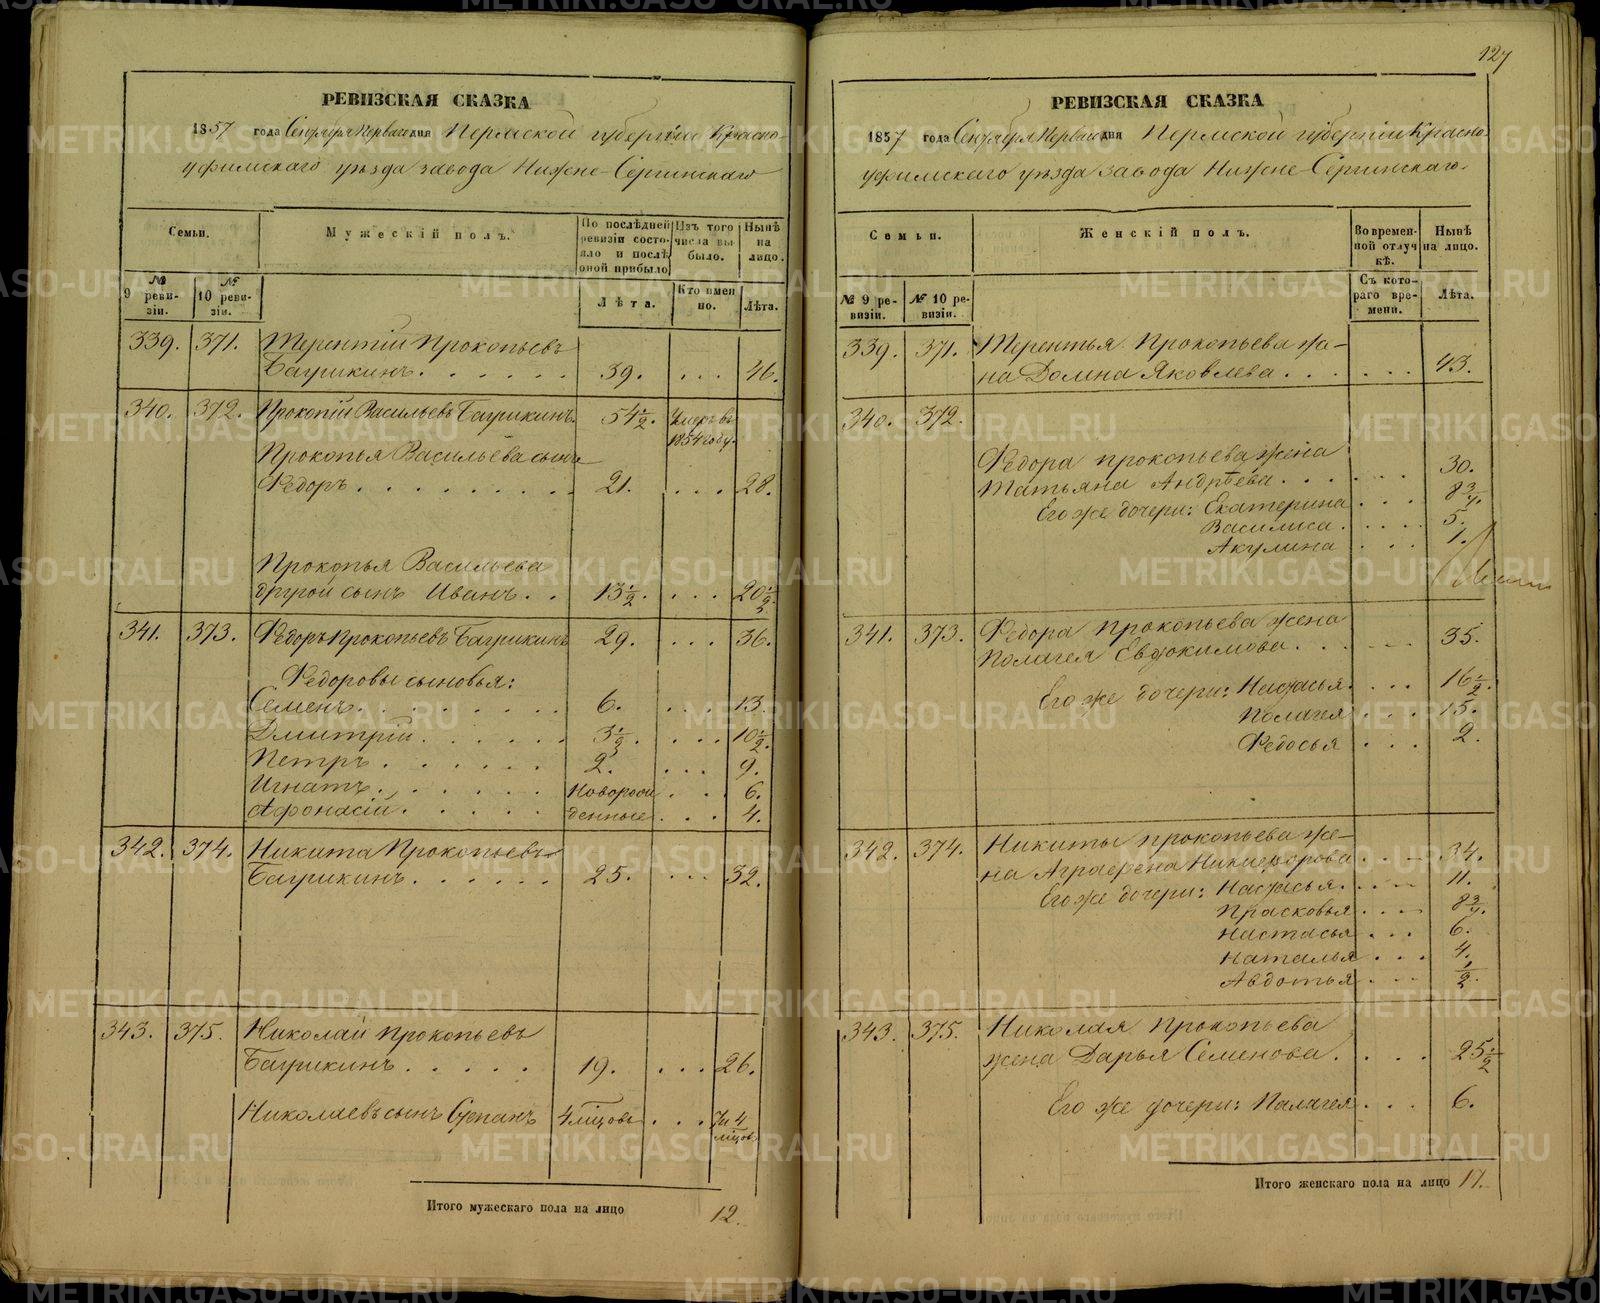 127
РЕВИЗСКАЯ СКАЗКА
1857 года Сентября Перваго дня Пермской губерніи Красно-
уфимскаго уѣзда завода Нижне-Сергинскаго
Семьи.
Мужескій полъ.
По послѣдней ревизіи состояло и послѣ оной прибыло
Изъ того числа выбыло.
Нынѣ на лицо.
№ 9 ревизіи.
№ 10 ревизіи.
Лѣта.
Кто именно.
Лѣта.
339. 371. Терентій Прокопьевъ
Багрикинъ . . . . . . 39. . . . 46.
340. 372. Прокопій Васильевъ Багрикинъ. 54½. Умеръ въ
1854 году.
Прокопья Васильева сынъ
Федоръ . . . . . . . . . 21. . . . 28.
Прокопья Васильева
другой сынъ Иванъ . . 13½. . . . 20½.
341. 373. Федоръ Прокопьевъ Багрикинъ 29. . . . 36.
Федоровы сыновья:
Семенъ . . . . . . . . 6. . . . 13.
Дмитрій . . . . . . 3½. . . . 10½.
Петръ . . . . . . . 2. . . . 9.
Игнатъ . . . . . . . Новорож . . . 6.
Афонасій . . . . . . денные . . . 4.
342. 374. Никита Прокопьевъ
Багрикинъ . . . . . . 25. . . . 32.
343. 375. Николай Прокопьевъ
Багрикинъ . . . . . 19. . . . 26.
Николаевъ сынъ Степанъ 4 мѣсцовъ . . . 4
мѣсцов
Итого мужескаго пола на лицо 12.
РЕВИЗСКАЯ СКАЗКА
1857 года Сентября Перваго дня Пермской губерніи Красно-
уфимскаго уѣзда завода Нижне-Сергинскаго.
Семьи.
Женскій полъ.
Во временной отлучкѣ.
Нынѣ на лицо.
№ 9 ревизіи.
№ 10 ревизіи.
Съ котораго времени.
Лѣта.
339. 371. Терентья Прокопьева же-
на Домна Яковлева . . . . . . 43.
340. 372.
Федора Прокопьева жена
Татьяна Андрѣева . . . . . . 30.
Его же дочери: Екатерина . . . 8¾.
Василиса . . . . . 5.
Акулина . . . 1.
341. 373. Федора Прокопьева жена
Полагея Евдокимова . . . . . . 35.
Его же дочери: Настасья . . . . 16½.
Полагея . . . 15.
Федосья . . . 2.
342. 374. Никиты Прокопьева же-
на Аграфена Никифорова . . . 34.
Его же дочери: Настасья . . . . 11.
Прасковья . . . 8¾.
Настасья . . . 6.
Наталья . . . 4.
Авдотья . . . ½.
343. 375. Николая Прокопьева
жена Дарья Семенова . . . . 25½
Его же дочери: Палагея . . . 6.
Итого женскаго пола на лицо 17.
METRIKI.GASO-URAL.RU